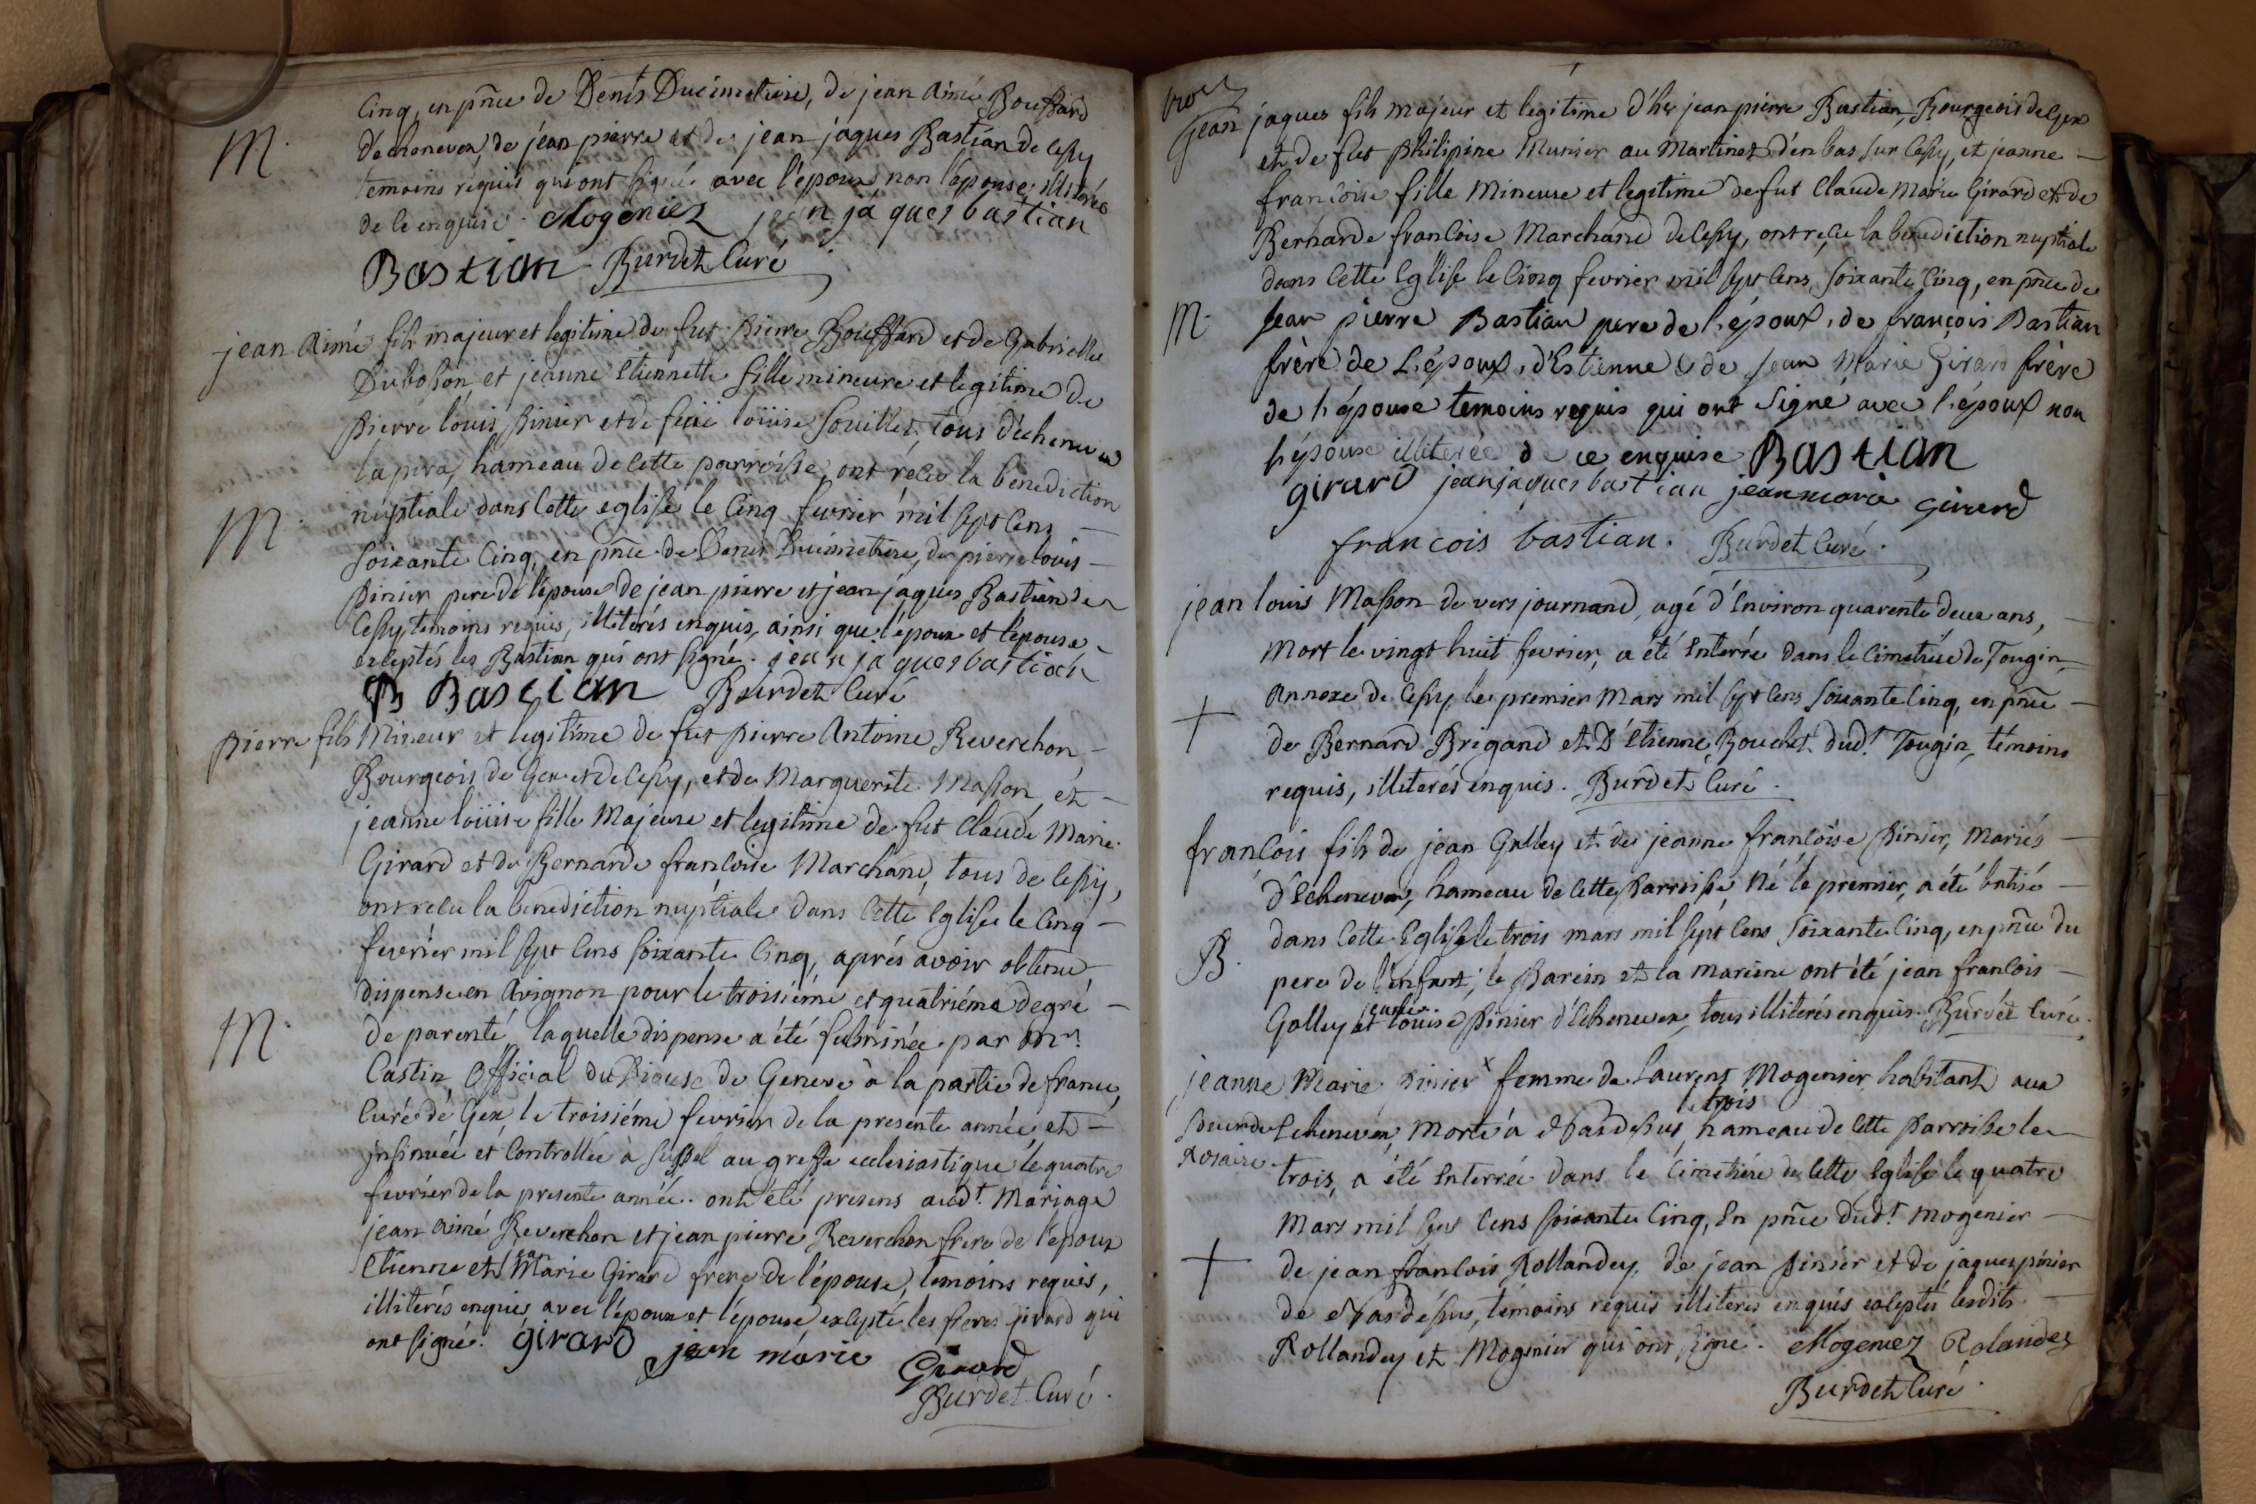 Cinq, en pñce de Denis Ducimetiere, de jean Aimé Bouffard
M.
d'echenevex, de jean pierre et de jean jaques Bastian de Cessy
temoins requis qui ont signé avec l'epoux non l'epouse illiterée
de ce enquise. Mogeniez jean jaques bastian
Bastian Burdet Curé
jean Aimé fils majeur et legitime de fut pierre Bouffard et de Gabrielle
Duboson et jeanne Etiennette fille mineure et legitime de
pierre loüis pinier et de feüe loüise Souillet, tous d'Echenevex
la pera, hameau de cette parroisse, ont recu la benediction
M.
nuptiale dans cette eglise le Cinq fevrier mil sept Cens
soixante Cinq, en pñce de Denis Ducimetiere, de pierre loüis
pinier pere de l'epouse de jean pierre et jean jaques Bastian de
Cessy temoins requis, illiterés enquis, ainsi que l'époux et l'epouse
exceptés les Bastian qui ont signé. jean jaques bastian
B Bastian Burdet Curé
pierre fils Mineur et legitime de fut pierre Antoine Reverchon
Bourgeois de Gex et de Cessy, et de Marguerite Masson, et
jeanne loüise fille Majeure et legitime de fut Claude Marie
Girard et de Bernarde francoise Marchand, tous de Cessy,
ont recu la benediction nuptiale dans Cette Eglise le Cinq
fevrier mil sept Cens soixante Cinq, aprés avoir obtenu
dispense en Avignon pour le troisiéme et quatriéme degré
M.
de parenté, laquelle dispense a été fulminée par Mr
Castin Official du Diocése de Geneve à la partie de france,
Curé de Gex, le troisiéme fevrier de la presente année, et
insinuée et Controllée à Seyssel au greffe ecclesiastique le quatre
fevrier de la presente année. ont été presens aud.t Mariage
jean Aimé Reverchon et jean pierre Reverchon frere de l'époux
Etienne et jean Marie Girard frere de l'épouse, temoins requis,
illiterés enquis avec l'époux et l'épouse excepté les freres girard qui
ont signé. girard jean marie Girard
Burdet Curé.
jean jaques fils majeur et legitime d'hr jean pierre Bastian, Bourgeois de Gex
et de fut philipine Munier au Martinet d'en bas sur Cessy, et jeanne
francoise fille Mineure et legitime de fut Claude Marie Girard et de
Bernarde francoise Marchand de Cessy, ont recu la benediction nuptiale
dans Cette Eglise le Cinq fevrier mil sept Cens soixante Cinq, en pñce de
M.
jean pierre Bastian pere de l'époux, de françois Bastian
frère de L'époux, d'Estienne & de jean Marie Girard frère
de l'épouse temoins requis qui ont signé avec l'époux non
l'épouse illiterée de ce enquise Bastian
girard jean jaques bastian jean marie girard
francois bastian. Burdet Curé.
jean louis Masson de vers journand, agé d'Environ quarente deux ans,
Mort le vingt huit fevrier, a été Enterré dans le Cimetiere de Tougin,
Annexe de Cessy le premier Mars mil sept Cens soixante Cinq, en pñce
de Bernard Brigand et D'Etienne Bouchet dud.t Tougin, témoins
requis, illiterés enquis. Burdet Curé.
françois fils de jean Golley et de jeanne françoise pinier, Mariés
d'Echenevex, hameau de Cette Parroisse, Né le premier, a été batisé
B.
dans Cette Eglise le trois mars mil sept Cens soixante Cinq, en pñce du
pere de l'Enfant; le Parein et la mareine ont été jean francois
Golley et jeanne loüise pinier d'Echenevex, tous illiterés enquis. Burdet Curé.
jeanne Marie pinier x femme de Laurent Mogenier habitant aux
le trois
Soeur du Echenevex, Morte à Nasdessus hameau de Cette Parroisse le
Rosaire. trois, a été Enterrée dans le Cimetiére de Cette Eglise le quatre
Mars mil sept Cens soixante Cinq, En pñce dud.t mogenier
de jean francois Rollandey, de jean pinier et de jaques pinier
de Nasdessus, témoins requis illiteres enquis exceptés lesdits
Rollandey et Mogenier qui ont signé. Mogeniez Rolandez
Burdet Curé.